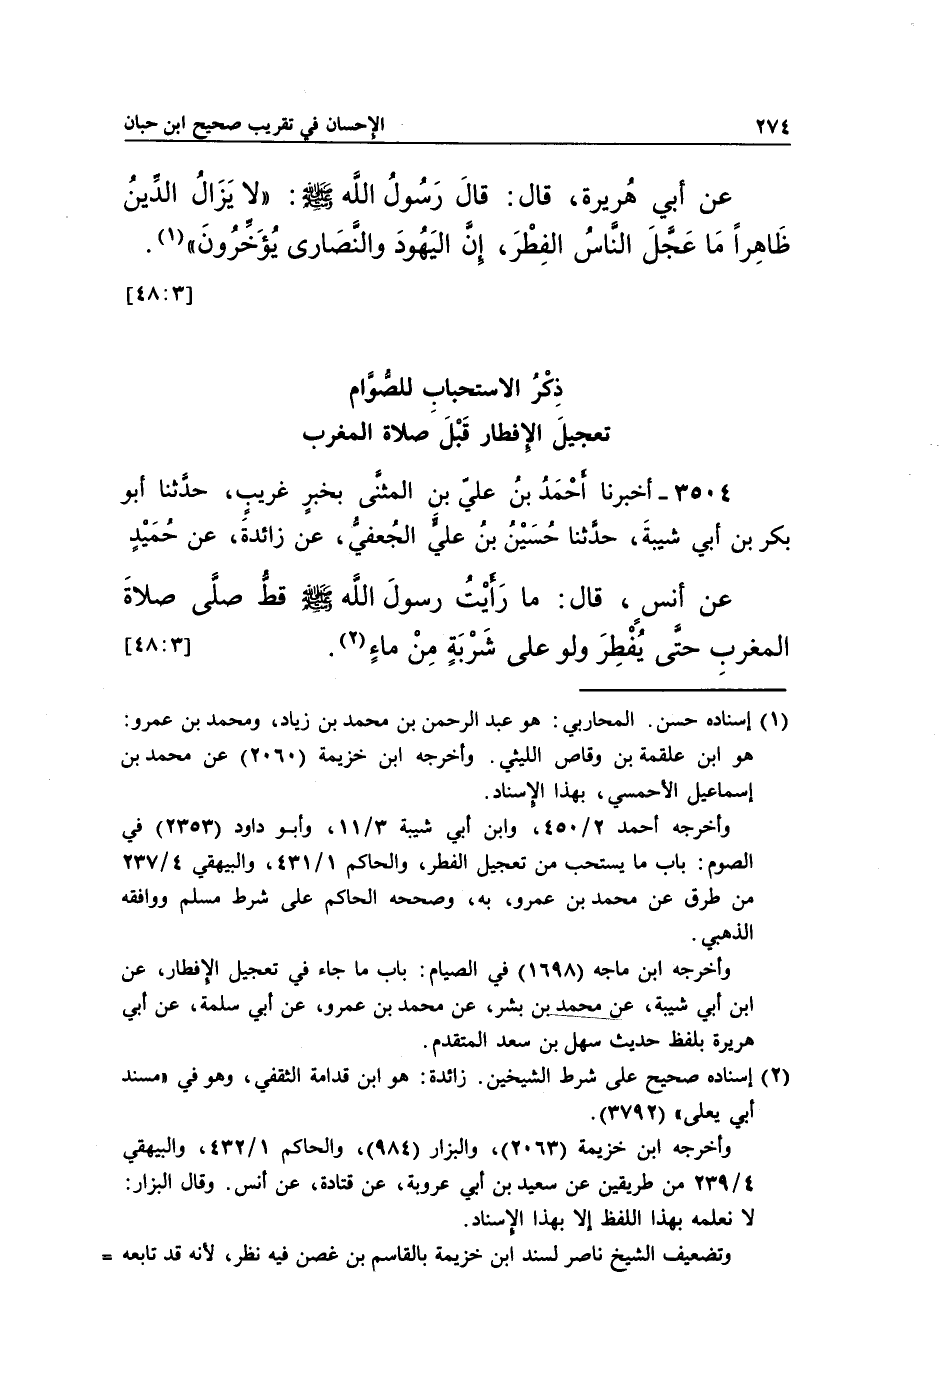 ٢٧٤ الإحسان في تقريب صحيح ابن حبان
عن أبي هُريرة، قال: قالَ رَسُولُ اللَّه ﷺ: «لا يَزَالُ الدِّينُ
ظَاهِراً مَا عَجَّلَ النَّاسُ الفِطْرَ، إِنَّ اليَهُودَ والنَّصَارى يُؤَخِّرُونَ»(١).
[٤٨:٣]
ذِكْرُ الاستحبابِ للصُّوَّام
تعجيلَ الإِفطار قَبْلَ صلاة المغرب
٣٥٠٤ ـ أخبرنا أَحْمَدُ بنُ عليِّ بنِ المثنَّى بخبرٍ غريبٍ، حدَّثنا أبو
بكر بن أبي شيبةَ، حدَّثنا حُسَيْنُ بنُ عليٍّ الجُعفيُّ، عن زائدةَ، عن حُمَيْدٍ
عن أنسٍ، قال: ما رَأَيْتُ رسولَ اللَّه ﷺ قطُّ صلَّى صلاةَ
المغربِ حتَّى يُفْطِرَ ولو على شَرْبَةٍ مِنْ ماءٍ(٢). [٤٨:٣]
(١) إسناده حسن. المحاربي: هو عبد الرحمن بن محمد بن زياد، ومحمد بن عمرو:
هو ابن علقمة بن وقاص الليثي. وأخرجه ابن خزيمة (٢٠٦٠) عن محمد بن
إسماعيل الأحمسي، بهذا الإِسناد.
وأخرجه أحمد ٤٥٠/٢، وابن أبي شيبة ١١/٣، وأبو داود (٢٣٥٣) في
الصوم: باب ما يستحب من تعجيل الفطر، والحاكم ٤٣١/١، والبيهقي ٢٣٧/٤
من طرق عن محمد بن عمرو، به، وصححه الحاكم على شرط مسلم ووافقه
الذهبي.
وأخرجه ابن ماجه (١٦٩٨) في الصيام: باب ما جاء في تعجيل الإِفطار، عن
ابن أبي شيبة، عن محمد بن بشر، عن محمد بن عمرو، عن أبي سلمة، عن أبي
هريرة بلفظ حديث سهل بن سعد المتقدم.
(٢) إسناده صحيح على شرط الشيخين. زائدة: هو ابن قدامة الثقفي، وهو في «مسند
أبي يعلى» (٣٧٩٢).
وأخرجه ابن خزيمة (٢٠٦٣)، والبزار (٩٨٤)، والحاكم ٤٣٢/١، والبيهقي
٢٣٩/٤ من طريقين عن سعيد بن أبي عروبة، عن قتادة، عن أنس. وقال البزار:
لا نعلمه بهذا اللفظ إلا بهذا الإِسناد.
وتضعيف الشيخ ناصر لسند ابن خزيمة بالقاسم بن غصن فيه نظر، لأنه قد تابعه =